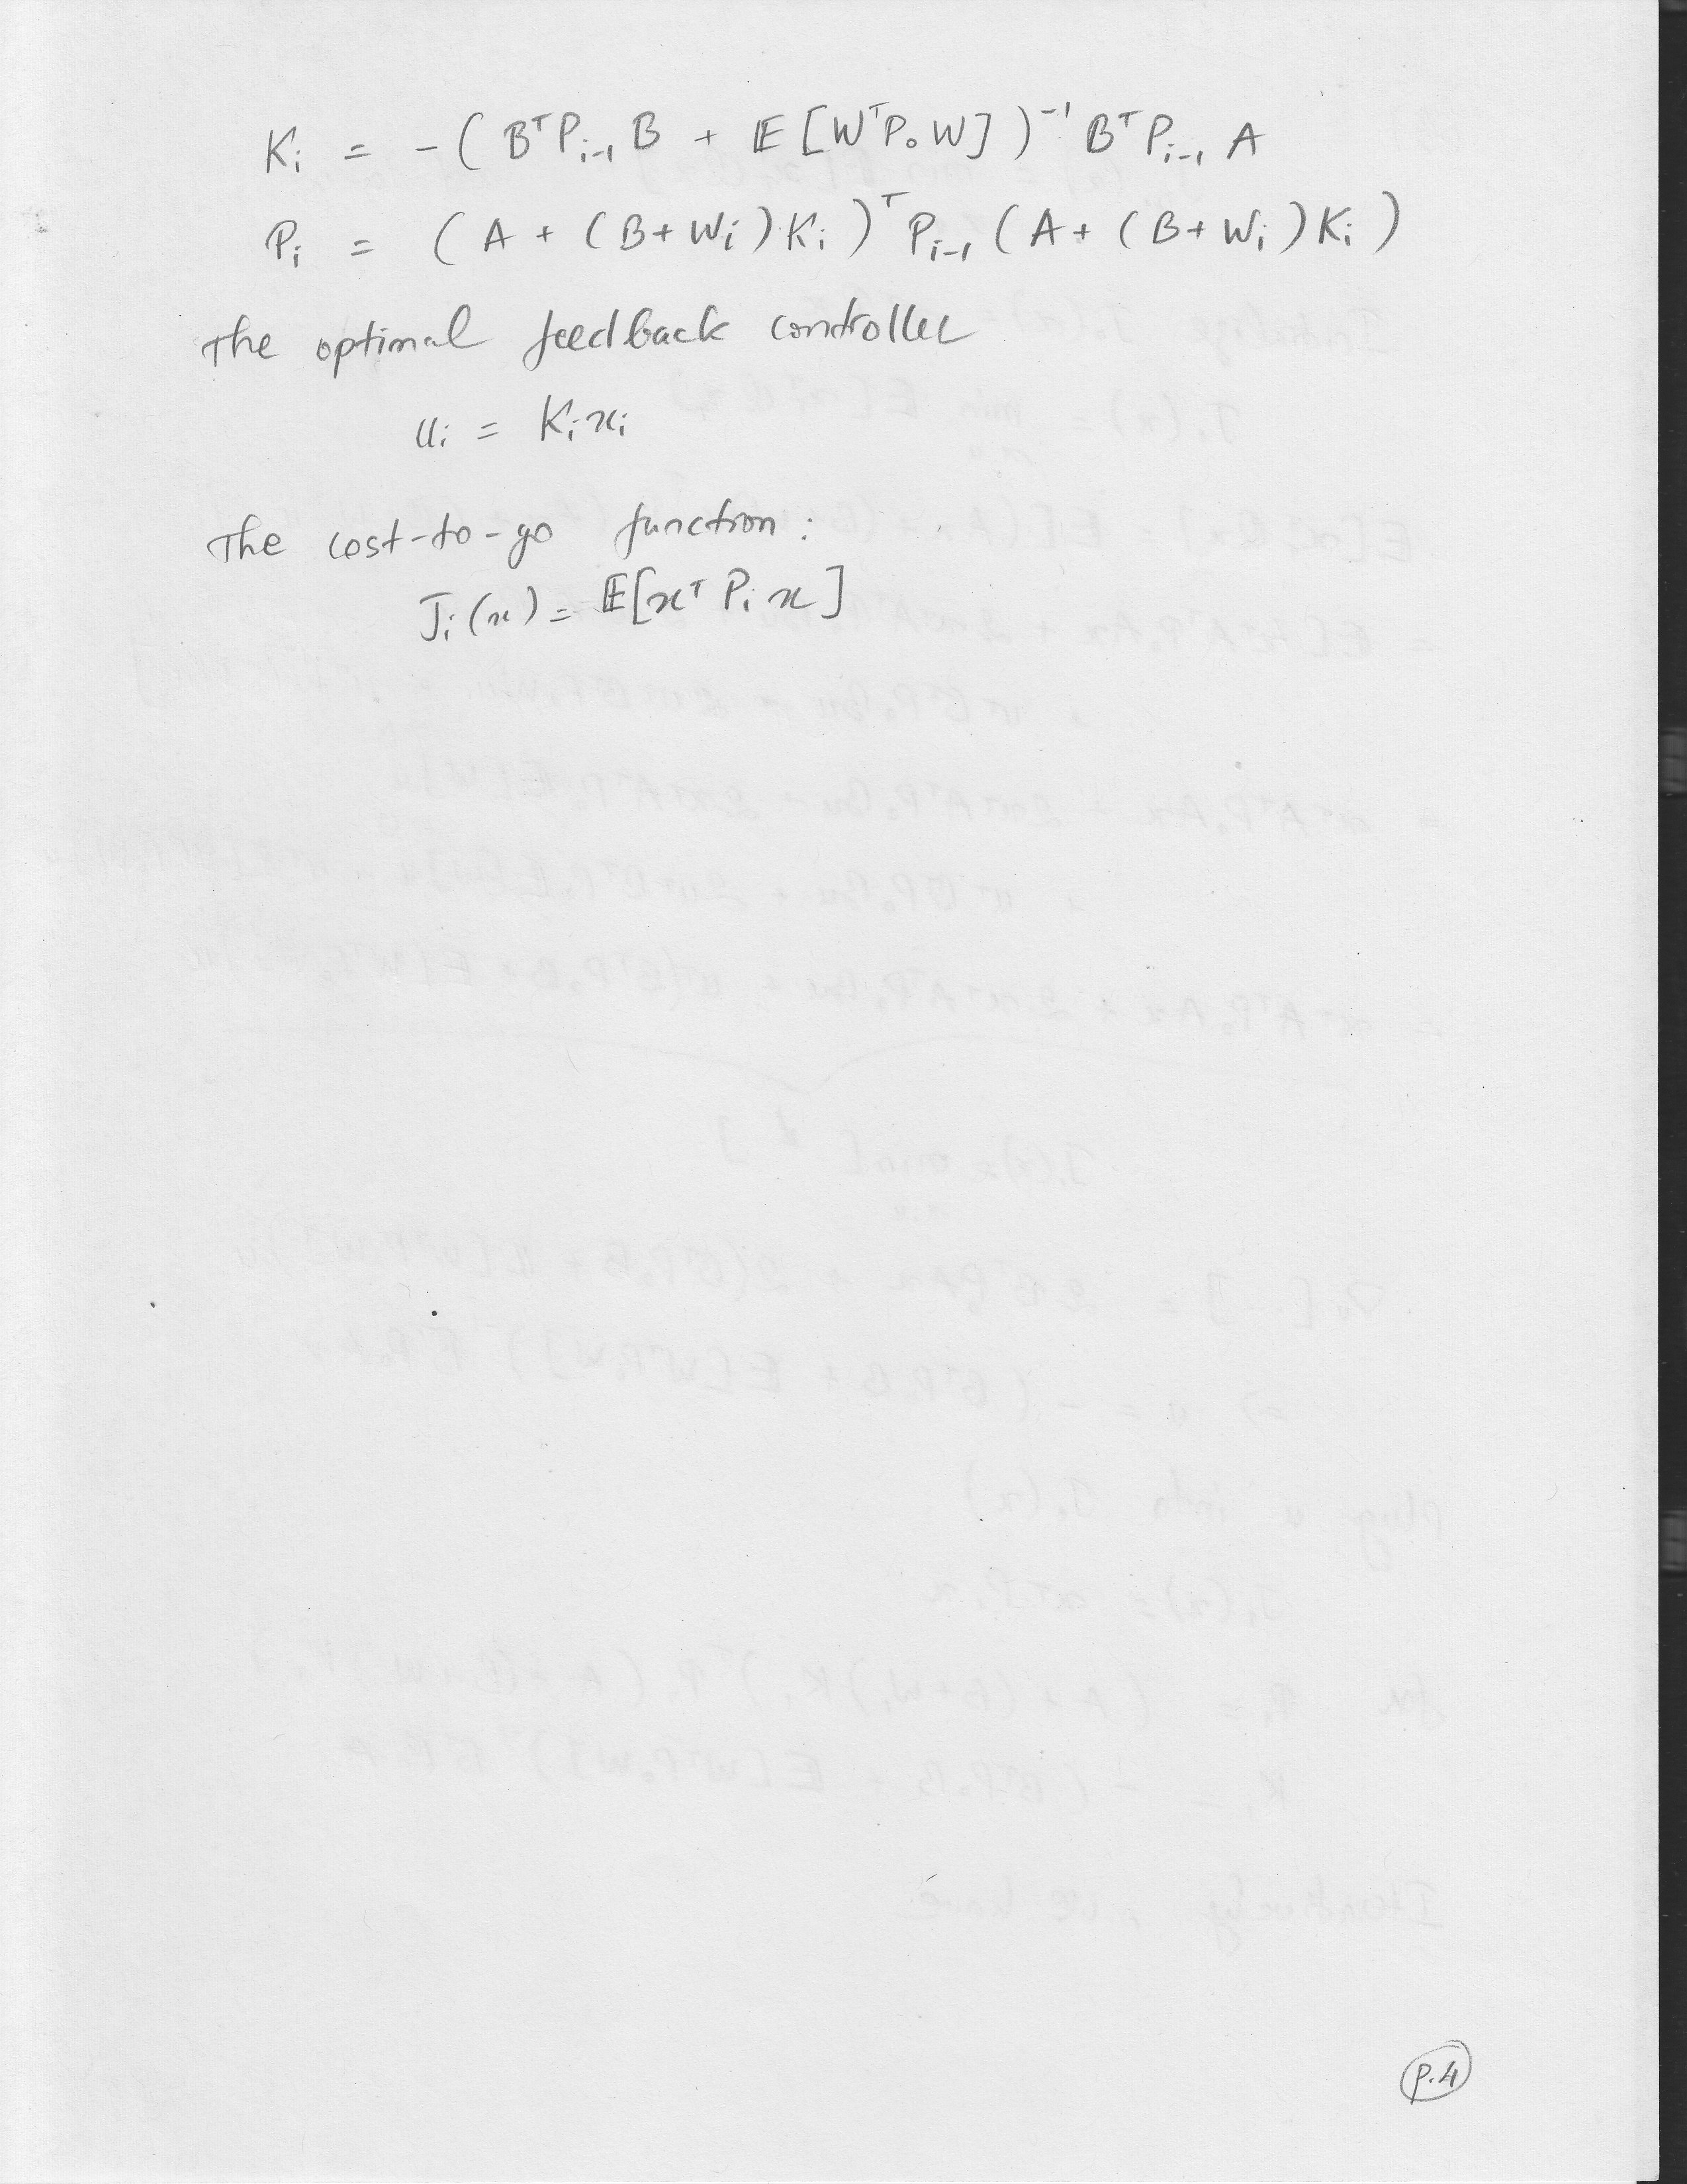 Kᵢ = -( BᵀPᵢ₋₁B + 𝔼[WᵀP₀W] )⁻¹ BᵀPᵢ₋₁ A
Pᵢ = ( A + (B+Wᵢ)Kᵢ )ᵀ Pᵢ₋₁ ( A + (B+Wᵢ)Kᵢ )
The optimal feedback controller
uᵢ = Kᵢxᵢ
The cost-to-go function :
Jᵢ(x) = 𝔼[xᵀ Pᵢ x]
P.4